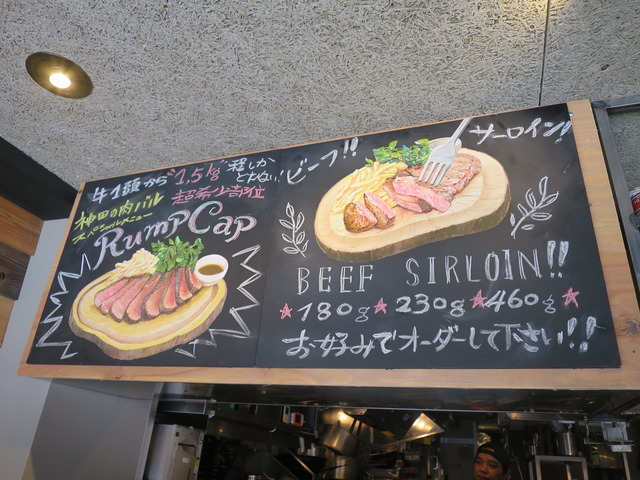 牛1頭から"1.5kg"程しか
とれない
超希少部位
神田の肉バル
スペシャルメニュー
RumpCap
ビーフ!!
サーロイン!
BEEF SIRLOIN!!
★180g★230g★460g★
お好みでオーダーして下さい!!